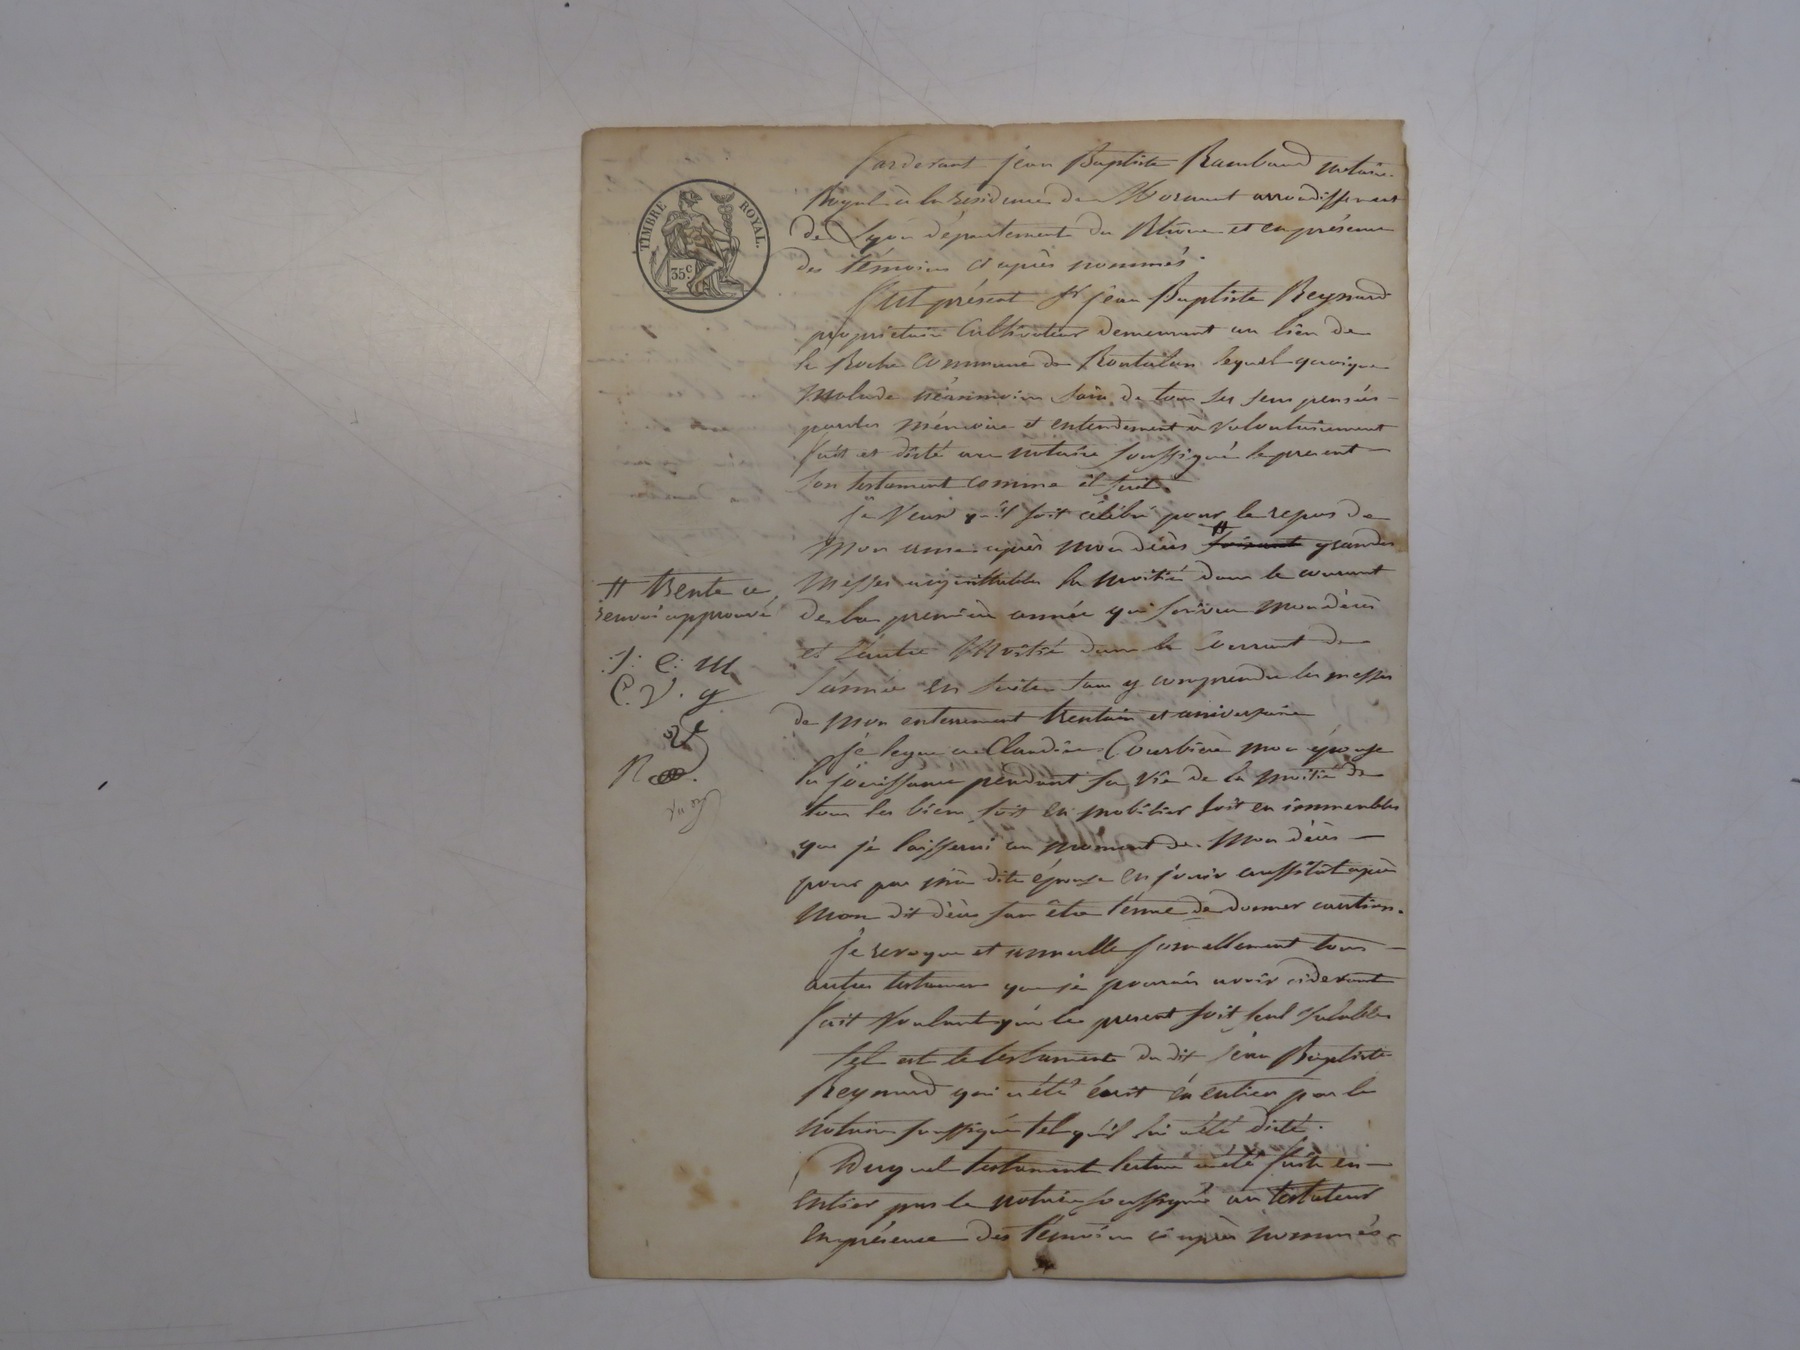 TIMBRE ROYAL.
35c
Pardevant jean Baptiste Rambaud notaire
Royal à la residence de Mornant arrondissement
de Lyon département du Rhône et en présence
des témoins ci après nommés.
Fut présent Sr jean Baptiste Reynard
propriétaire Cultivateur demeurant au lieu de
la Roche Commune de Rontalon lequel quoique
malade néanmoins sain de tous ses sens pensées
paroles mémoire et entendement a volontairement
fait et dicté au notaire soussigné le present
son testament comme il suit.
Je Veux qu'il soit célébré pour le repos de
Mon ame après mon décès # grandes
Messes la moitié dans le courant
de la première année qui suivra Mon décès
et l'autre Moitié dans le Courrant de
l'année en suite sans y comprendre les messes
de Mon enterrement trentain et aniversaire
Je legue a Claudine Courbière mon épouse
la jouissance pendant sa vie de la moitié de
tous les biens soit en mobilier soit en immeubles
que je laisserai au moment de Mon décès
pour par ma dite épouse en jouir aussitôt après
Mon dit décès san être tenue de donner caution.
Je revoque et annulle formellement tous
autres testamens que je pourais avoir cidevant
fait Voulant que le present soit seul Valable
Tel est le testament du dit jean Baptiste
Reynard qui a été écrit en entier par le
Notaire soussigné tel qu'il lui a été dicté.
Duquel testament lecture a été faite en
entier par le notaire soussigné au testateur
en présence des témoins ci après nommés
# trente ce
renvoi approuvé
J. C. M
C. V. g
R